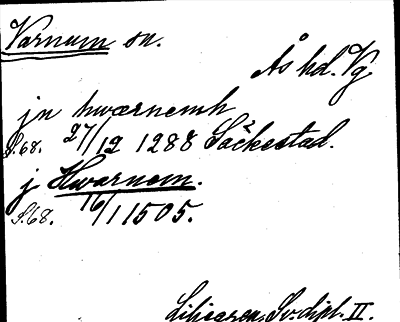 Varnum sn.
Ås hd. Vg.
jn hwærnemh
S.68. 27/12 1288 Säckestad.
j Hwarnom.
S.68. 16/1 1505.
Liljegren, Sv. dipl. II.